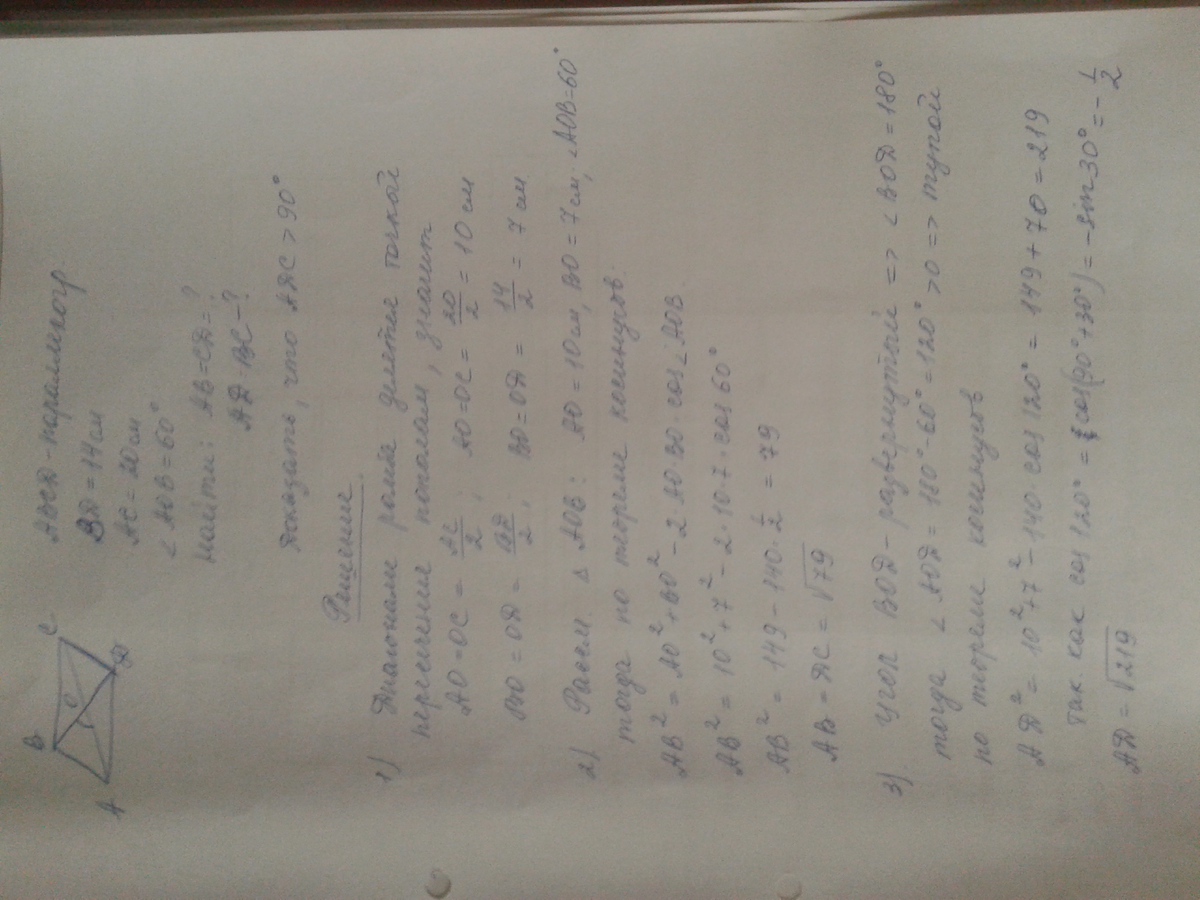 B C
O
A D
ABCD - параллелогр.
BD = 14 см
AC = 20 см
∠ AOB = 60°
Найти: AB = CD = ?
AD · BC - ?
Доказать, что ADC > 90°
Решение.
1) Диагонали ромба делятся точкой
пересечения пополам, значит
AO = OC = AC/2; AO = OC = 20/2 = 10 см
BO = OD = BD/2; BO = OD = 14/2 = 7 см
2) Рассм. Δ AOB: AO = 10 см, BO = 7 см, ∠AOB = 60°
тогда по теореме косинусов:
AB² = AO² + BO² - 2 · AO · BO · cos ∠ AOB
AB² = 10² + 7² - 2 · 10 · 7 · cos 60°
AB² = 149 - 140 · 1/2 = 79
AB = DC = √79
3). Угол BOD - развернутый => ∠ BOD = 180°
тогда ∠ AOD = 180° - 60° = 120° > 0 => тупой
по теореме косинусов
AD² = 10² + 7² - 140 · cos 120° = 149 + 70 = 219
так как cos 120° = cos(90° + 30°) = - sin 30° = - 1/2
AD = √219